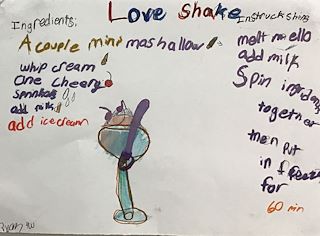 Love Shake
Ingredients:
A couple mini mashallow
whip cream
One cheery
Sprinkals
add milk
add icecream
Instruckshins
melt mello
add milk
Spin
together
then Pit
in freeze
for
60 min